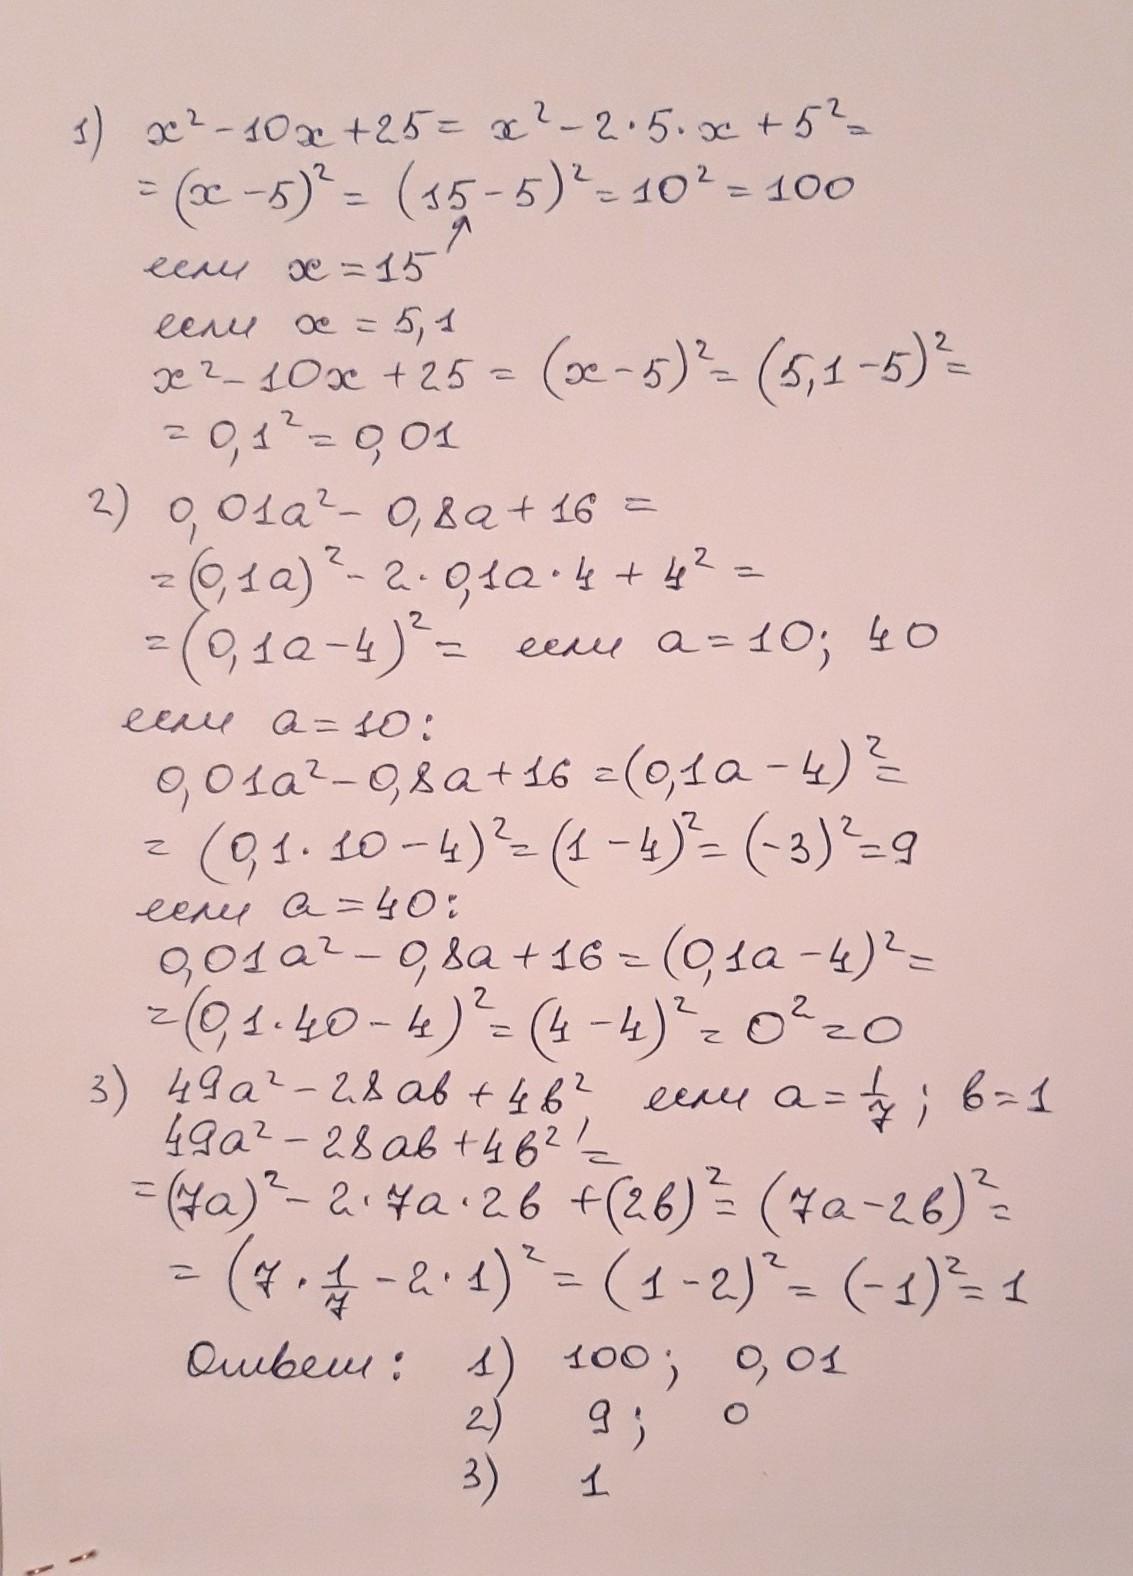 1) x² - 10x + 25 = x² - 2·5·x + 5² =
= (x - 5)² = (15 - 5)² = 10² = 100
если x = 15
если x = 5,1
x² - 10x + 25 = (x - 5)² = (5,1 - 5)² =
= 0,1² = 0,01
2) 0,01a² - 0,8a + 16 =
= (0,1a)² - 2·0,1a·4 + 4² =
= (0,1a - 4)² = если a = 10; 40
если a = 10:
0,01a² - 0,8a + 16 = (0,1a - 4)² =
= (0,1·10 - 4)² = (1 - 4)² = (-3)² = 9
если a = 40:
0,01a² - 0,8a + 16 = (0,1a - 4)² =
= (0,1·40 - 4)² = (4 - 4)² = 0² = 0
3) 49a² - 28ab + 4b², если a = 1/7; b = 1
49a² - 28ab + 4b² =
= (7a)² - 2·7a·2b + (2b)² = (7a - 2b)² =
= (7·1/7 - 2·1)² = (1 - 2)² = (-1)² = 1
Ответ: 1) 100; 0,01
2) 9; 0
3) 1